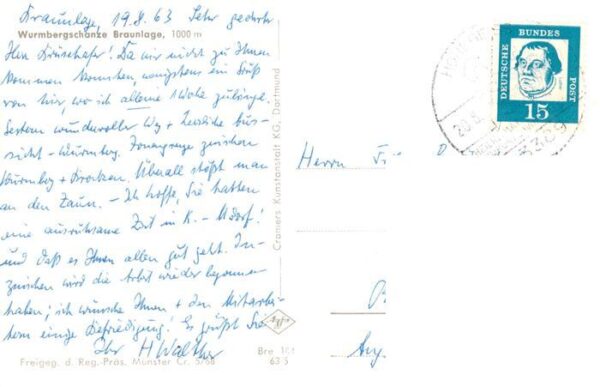 Braunlage, 19.8.63 Sehr geehrter
Wurmbergschanze Braunlage, 1000 m
Herr ! Da wir nicht zu Ihnen
kommen konnten, wenigstens ein Gruß
von hier, wo ich alleine 1 Woche zubringe.
Gestern wundervoller Weg + herrliche Aus-
sicht - Wurmberg. Zonengrenze zwischen
Wurmberg + Brocken. Überall stößt man
an den Zaun. - Ich hoffe, Sie hatten
eine ausruhsame Zeit in K. - Udorf!
und daß es Ihnen allen gut geht. In-
zwischen wird die Arbeit wieder begonnen
haben; ich wünsche Ihnen + den Mitarbei-
tern einige Befriedigung! Es grüßt Sie
Ihr H Walther
Freigeg. d. Reg. Präs. Münster Cr. 5768
Cramers Kunstanstalt KG, Dortmund
Agfa
Bre
63 5
DEUTSCHE BUNDES POST
15
20.8.
Herrn